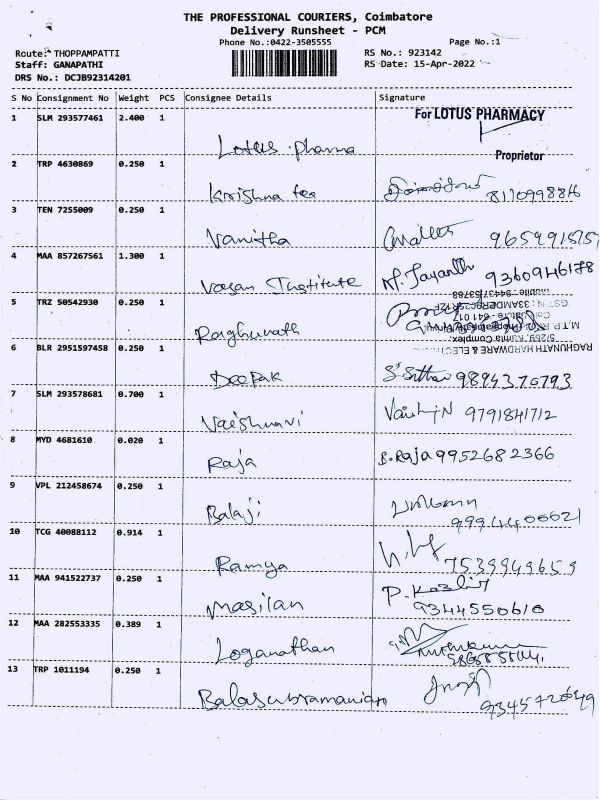 THE PROFESSIONAL COURIERS, Coimbatore
Delivery Runsheet - PCM
Phone No.:0422-3505555 Page No.:1
Route: THOPPAMPATTI RS No.: 923142
Staff: GANAPATHI RS Date: 15-Apr-2022
DRS No.: DCJB92314201
S No Consignment No Weight PCS Consignee Details Signature
1 SLM 293577461 2.400 1 Lotus pharma For LOTUS PHARMACY
Proprietor
2 TRP 4630869 0.250 1 Krishna tea
3 TEN 7255009 0.250 1 Vanitha
4 MAA 857267561 1.300 1 Vasan Institute M. Jayanth 9360946178
5 TRZ 50542930 0.250 1 Raghunath
RAGHUNATH HARDWARE & ELECT
6 BLR 2951597458 0.250 1 Deepak 9894370793
7 SLM 293578681 0.700 1 Vaishnavi 9791841712
8 MYD 4681610 0.020 1 Raja B. Raja 9952682366
9 VPL 212458674 0.250 1 Balaji
10 TCG 40088112 0.914 1 Ramya 7539949659
11 MAA 941522737 0.250 1 Masilan 9344550610
12 MAA 282553335 0.389 1 Loganathan
13 TRP 1011194 0.250 1 Balasubramanian